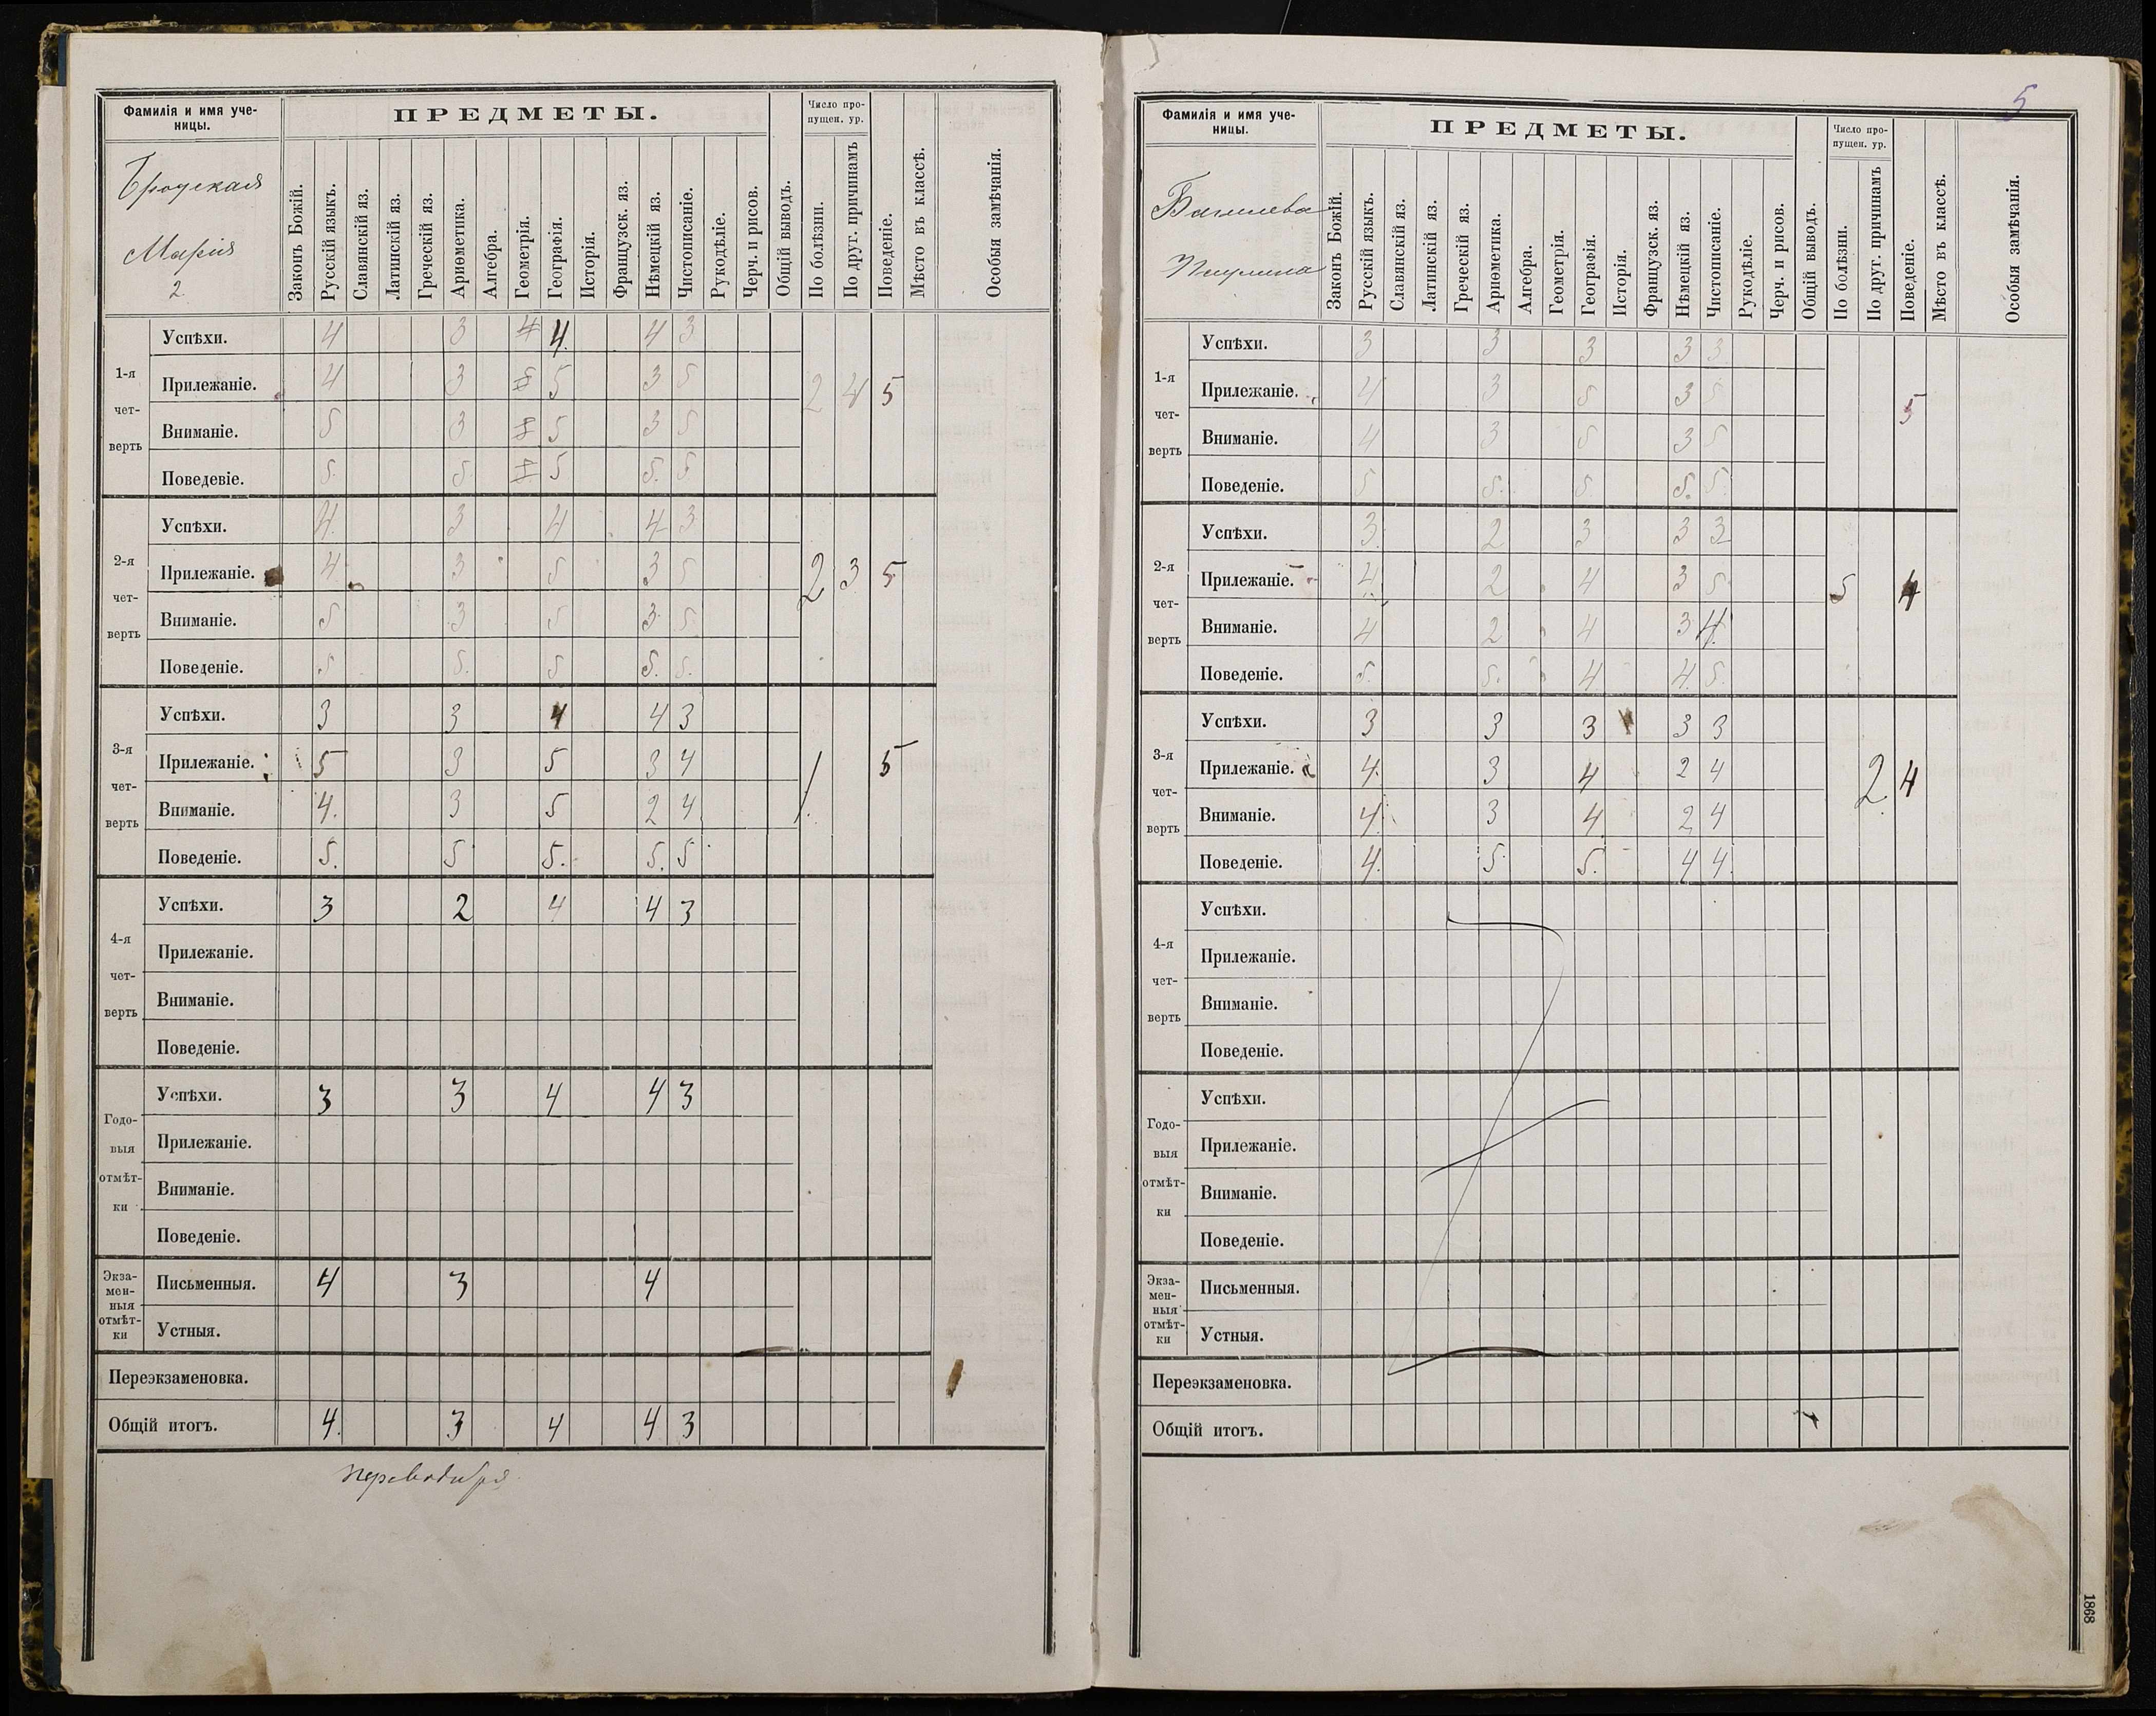 Фамилія и имя уче-
ницы.
ПРЕДМЕТЫ.
Число про-
пущен. ур.
Бродская
Марія
2.
Законъ Божій.
Русскій языкъ.
Славянскій яз.
Латинскій яз.
Греческій яз.
Ариѳметика.
Алгебра.
Геометрія.
Географія.
Исторія.
Французск. яз.
Нѣмецкій яз.
Чистописаніе.
Рукодѣліе.
Черч. и рисов.
Общій выводъ.
По болѣзни.
По друг. причинамъ
Поведеніе.
Мѣсто въ классѣ.
Особыя замѣчанія.
1-я
чет-
верть
Успѣхи. 4 3 4 4. 4 3
Прилежаніе. 4 3 5 5 3 5
2 4 5
Вниманіе. 5 3 5 5 3 5
Поведевіе. 5. 5. 5 5 5. 5
2-я
чет-
верть
Успѣхи. 4. 3 4 4 3
Прилежаніе. 4 3 5 3 5
2 3 5
Вниманіе. 5 3 5 3 5
Поведеніе. 5 5. 5 5. 5.
3-я
чет-
верть
Успѣхи. 3 3 4 4 3
Прилежаніе. 5 3 5 3 4
1. 5
Вниманіе. 4. 3 5 2 4
Поведеніе. 5. 5 5. 5. 5
4-я
чет-
верть
Успѣхи. 3 2 4 4 3
Прилежаніе.
Вниманіе.
Поведеніе.
Годо-
выя
отмѣт-
ки
Успѣхи. 3 3 4 4 3
Прилежаніе.
Вниманіе.
Поведеніе.
Экза-
мен-
ныя
отмѣт-
ки
Письменныя. 4 3 4
Устныя.
Переэкзаменовка.
Общій итогъ. 4. 3 4 4 3
5
Фамилія и имя уче-
ницы.
ПРЕДМЕТЫ.
Число про-
пущен. ур.
Законъ Божій.
Русскій языкъ.
Славянскій яз.
Латинскій яз.
Греческій яз.
Ариѳметика.
Алгебра.
Геометрія.
Географія.
Исторія.
Французск. яз.
Нѣмецкій яз.
Чистописаніе.
Рукодѣліе.
Черч. и рисов.
Общій выводъ.
По болѣзни.
По друг. причинамъ
Поведеніе.
Мѣсто въ классѣ.
Особыя замѣчанія.
1-я
чет-
верть
Успѣхи. 3 3 3 3 3
Прилежаніе. 4 3 5 3 5
5
Вниманіе. 4 3 5 3 5
Поведеніе. 5 5. 5. 5. 5.
2-я
чет-
верть
Успѣхи. 3 2 3 3 3
Прилежаніе. 4 2 4 3 5
5 4
Вниманіе. 4 2 4 3 4.
Поведеніе. 5. 5. 4 4. 5.
3-я
чет-
верть
Успѣхи. 3 3 3 3 3
Прилежаніе. 4. 3 4 2 4
2. 4
Вниманіе. 4. 3 4. 2 4
Поведеніе. 4. 5 5. 4 4.
4-я
чет-
верть
Успѣхи.
Прилежаніе.
Вниманіе.
Поведеніе.
Годо-
выя
отмѣт-
ки
Успѣхи.
Прилежаніе.
Вниманіе.
Поведеніе.
Экза-
мен-
ныя
отмѣт-
ки
Письменныя.
Устныя.
Переэкзаменовка.
Общій итогъ.
1868